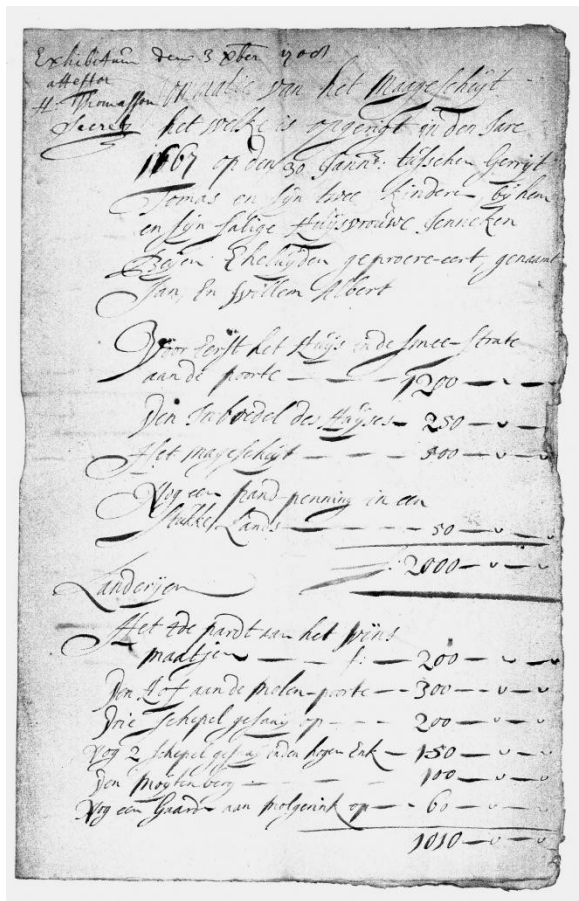 Exhibitum den 3 xber 1708
attestor
H. Thomassen
Secret
Formatie van het Magescheijt
het welke is opgerigt in den Jare
1667 op den 30 Jannr: tusschen Gerrijt
Tomas en sijn twee kindere bij hem
en sijn salige huijsvrouwe Jenneken
Beijen Eheluijden geprocre-eert, genaamt
Jan, En Willem Albert
Voor Eerst het Huijs in de smee-strate
aan de poorte - - - 1200 - „ - „
Den Inboedel des Huijses - 250 - „ - „
Het magescheijt - - - 500 - „ - „
Nog een pand-penning in een
stukke Lands - - - 50 - „ - „
f: 2000 - „ - „
Landerijen
Het 4de pardt van het
maatjen - - - f: 200 - „ - „
Den Hof aan de molen-poorte - - 300 - „ - „
Drie schepel gesaaij op - - - 200 - „ - „
Nog 2 schepel gesaaij in den hogen Enk - 150 - „ - „
Den - - - 100 - „ - „
Nog een Gaarde aan op - - 60 - „ - „
1010 - „ - „